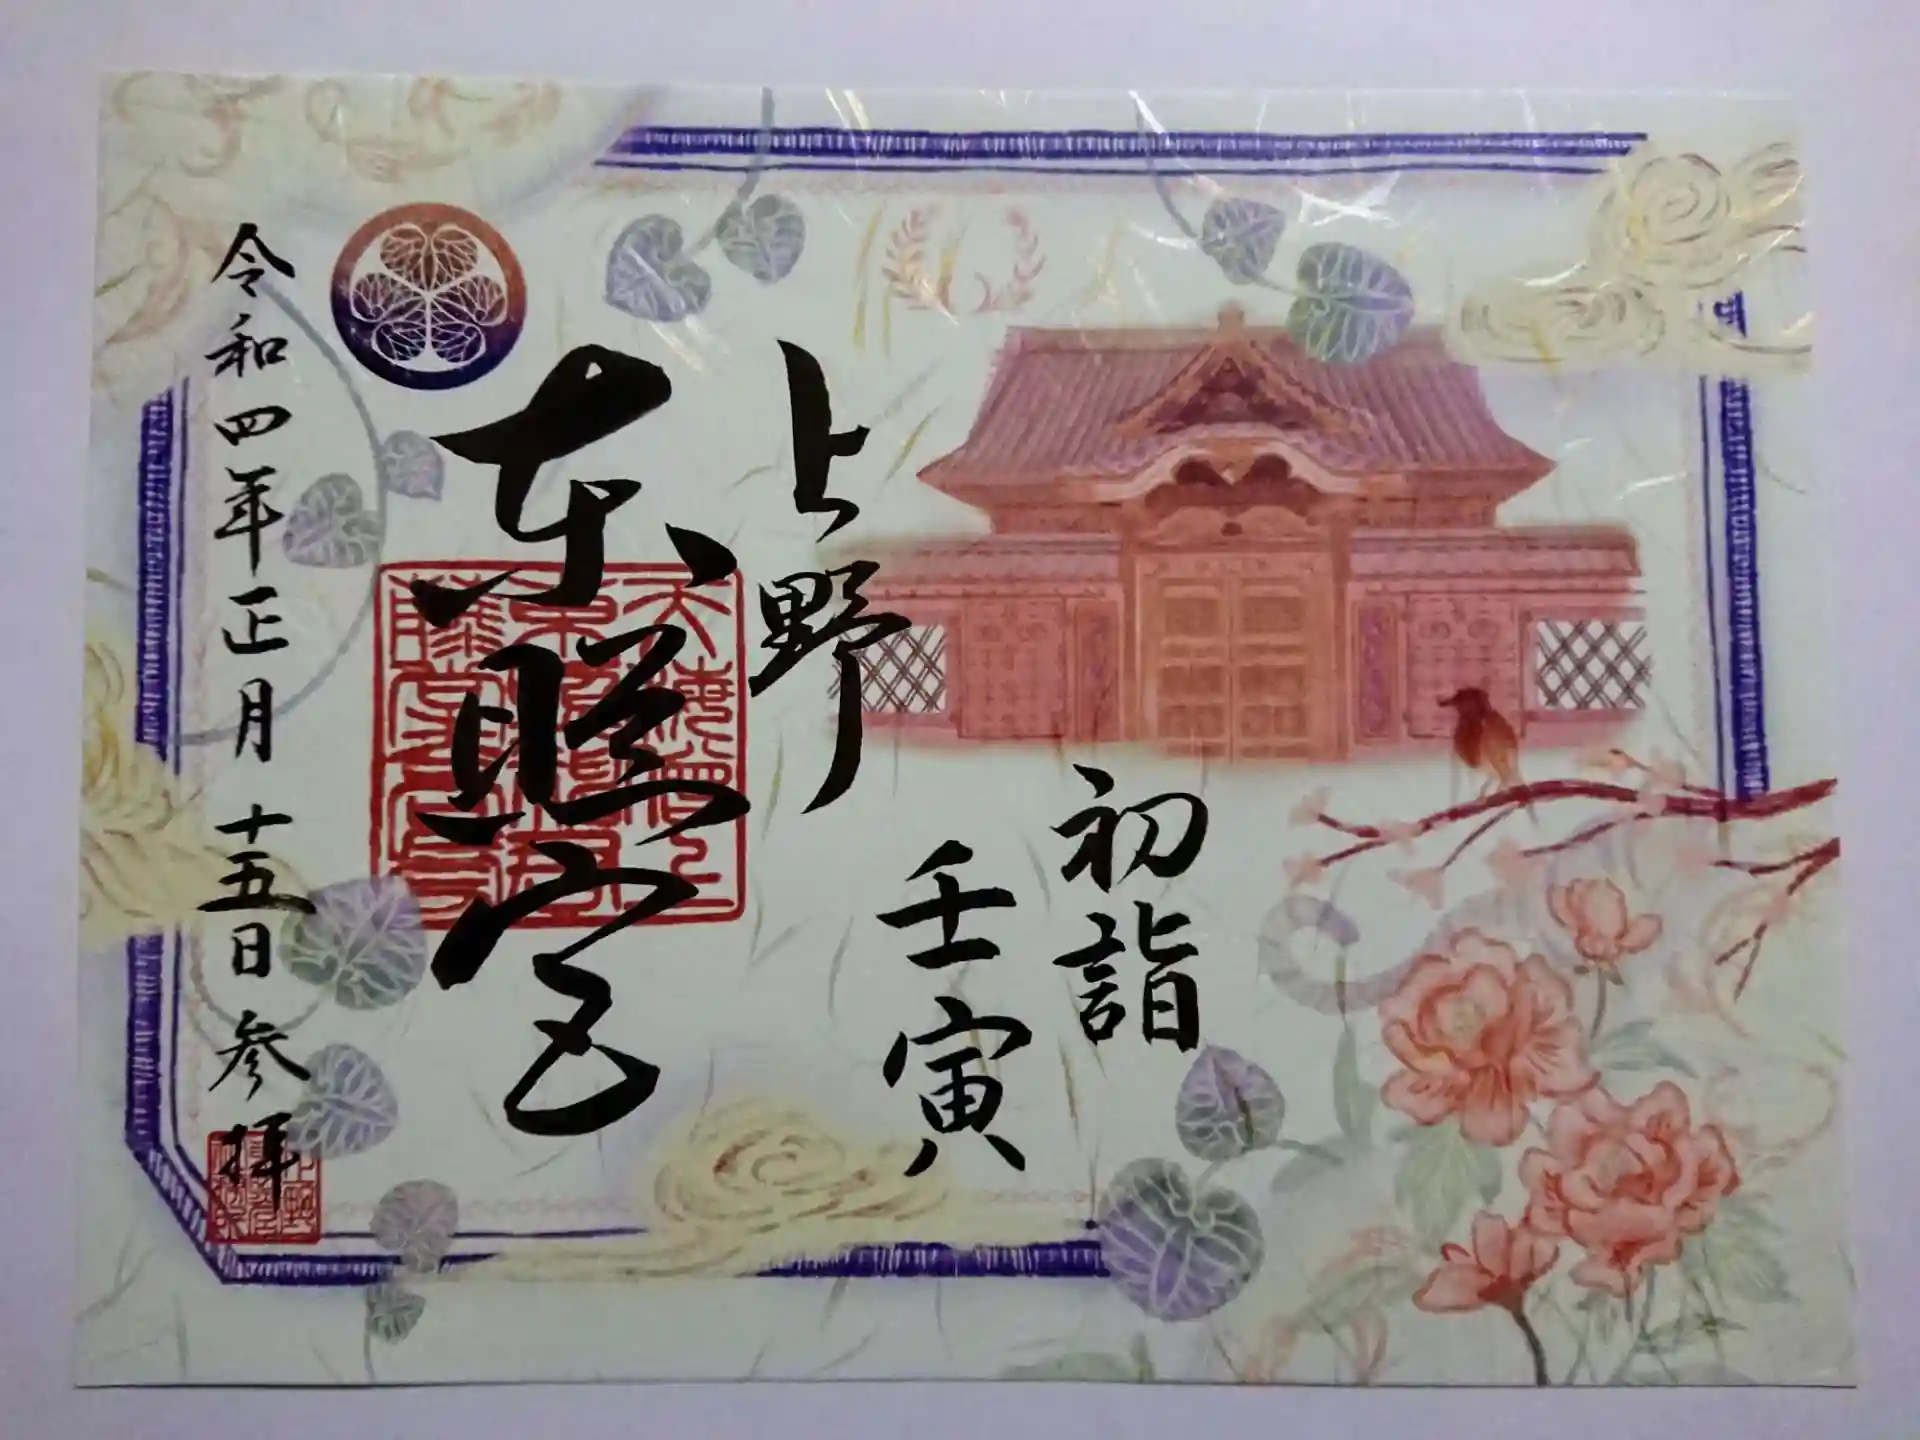 初詣
壬寅
上野
東照宮
令和四年正月十五日参拝